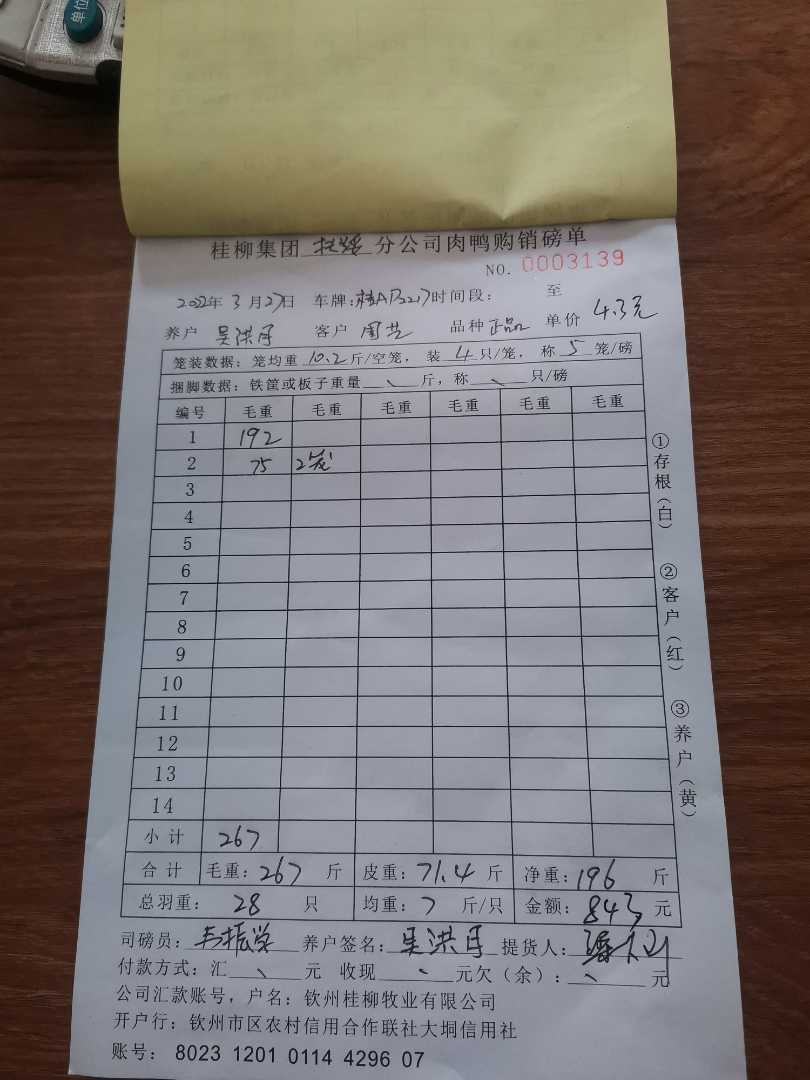 单位
桂柳集团 扶绥 分公司肉鸭购销磅单
NO. 0003139
2022年 3月27日 车牌: 时间段: 至
养户 吴洪月 客户 周芝 品种 正品 单价 4.3元
笼装数据: 笼均重 10.2 斤/空笼, 装 4 只/笼, 称 5 笼/磅
捆脚数据: 铁筐或板子重量 、 斤, 称 、 只/磅
编号 毛重 毛重 毛重 毛重 毛重 毛重
1 192
2 75 2笼
3
4
5
6
7
8
9
10
11
12
13
14
小计 267
合计 毛重: 267 斤 皮重: 71.4 斤 净重: 196 斤
总羽重: 28 只 均重: 7 斤/只 金额: 843 元
司磅员: 韦振学 养户签名: 吴洪月 提货人:
付款方式: 汇 、 元 收现 、 元欠(余): 、 元
公司汇款账号, 户名: 钦州桂柳牧业有限公司
开户行: 钦州市区农村信用合作联社大垌信用社
账号: 8023 1201 0114 4296 07
①存根(白)
②客户(红)
③养户(黄)